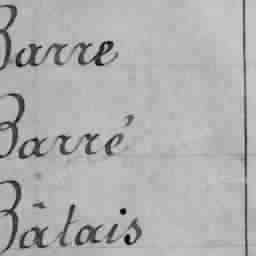 Barre
Barré
Bâtais